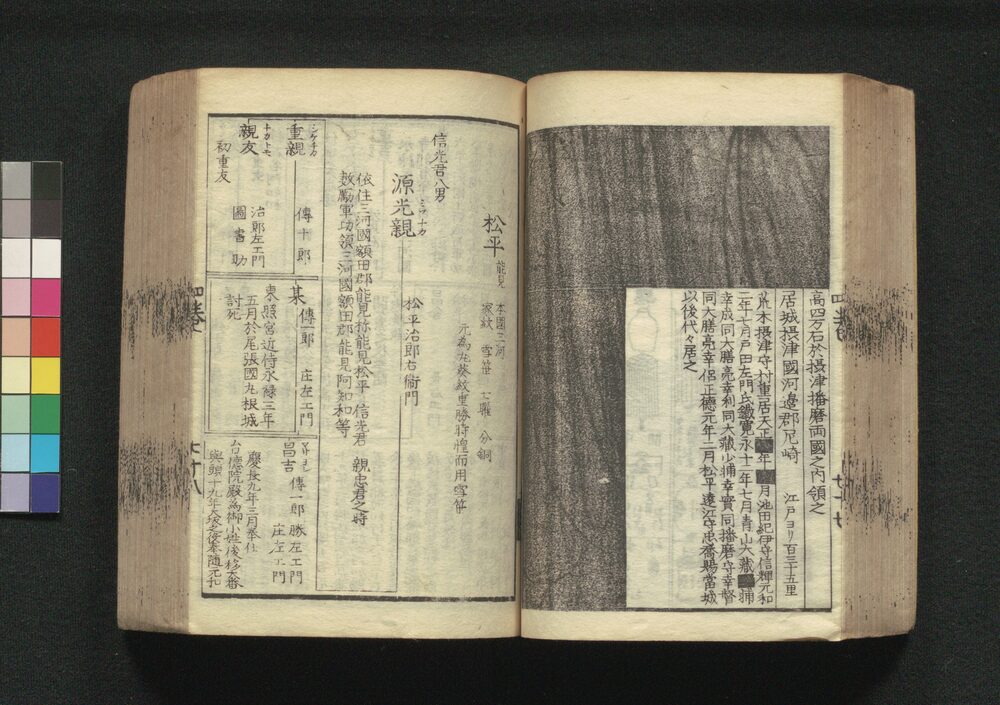 高四万石於摂津播磨両國之内領之
居城摂津國河邉郡尼崎 江戸ヨリ百三十五里
荒木摂津守村重居天正年月池田紀伊守信輝元和
三年七月戸田左門氏鐵寛永十二年七月青山大藏輔
幸成同大膳亮幸利同大藏少輔幸實同播磨守幸督
同大膳亮幸侶正徳元年二月松平遠江守忠喬賜當城
以後代々居之
松平 能見
本國三河
家紋 雪笹 七曜 分銅
元為丸葵紋重勝時惶而用雪笹
信光君八男
源光親 ミツチカ
松平治郎右衞門
依住三河國額田郡能見称能見松平 信光君 親忠君之時
数勵軍功領三河國額田郡能見阿知和等
重親 シケチカ
傳十郎
親友 チカトモ
初重友
治郎左エ門
圖書助
某 傳一郎 庄左エ門
東照宮近侍永禄三年
五月於尾張國丸根城
討死
昌吉 傳一郎 勝左エ門
庄左エ門
慶長九年三月奉仕
台德院殿為御小姓後移大番
與頭十九年大坂之役奉随元和